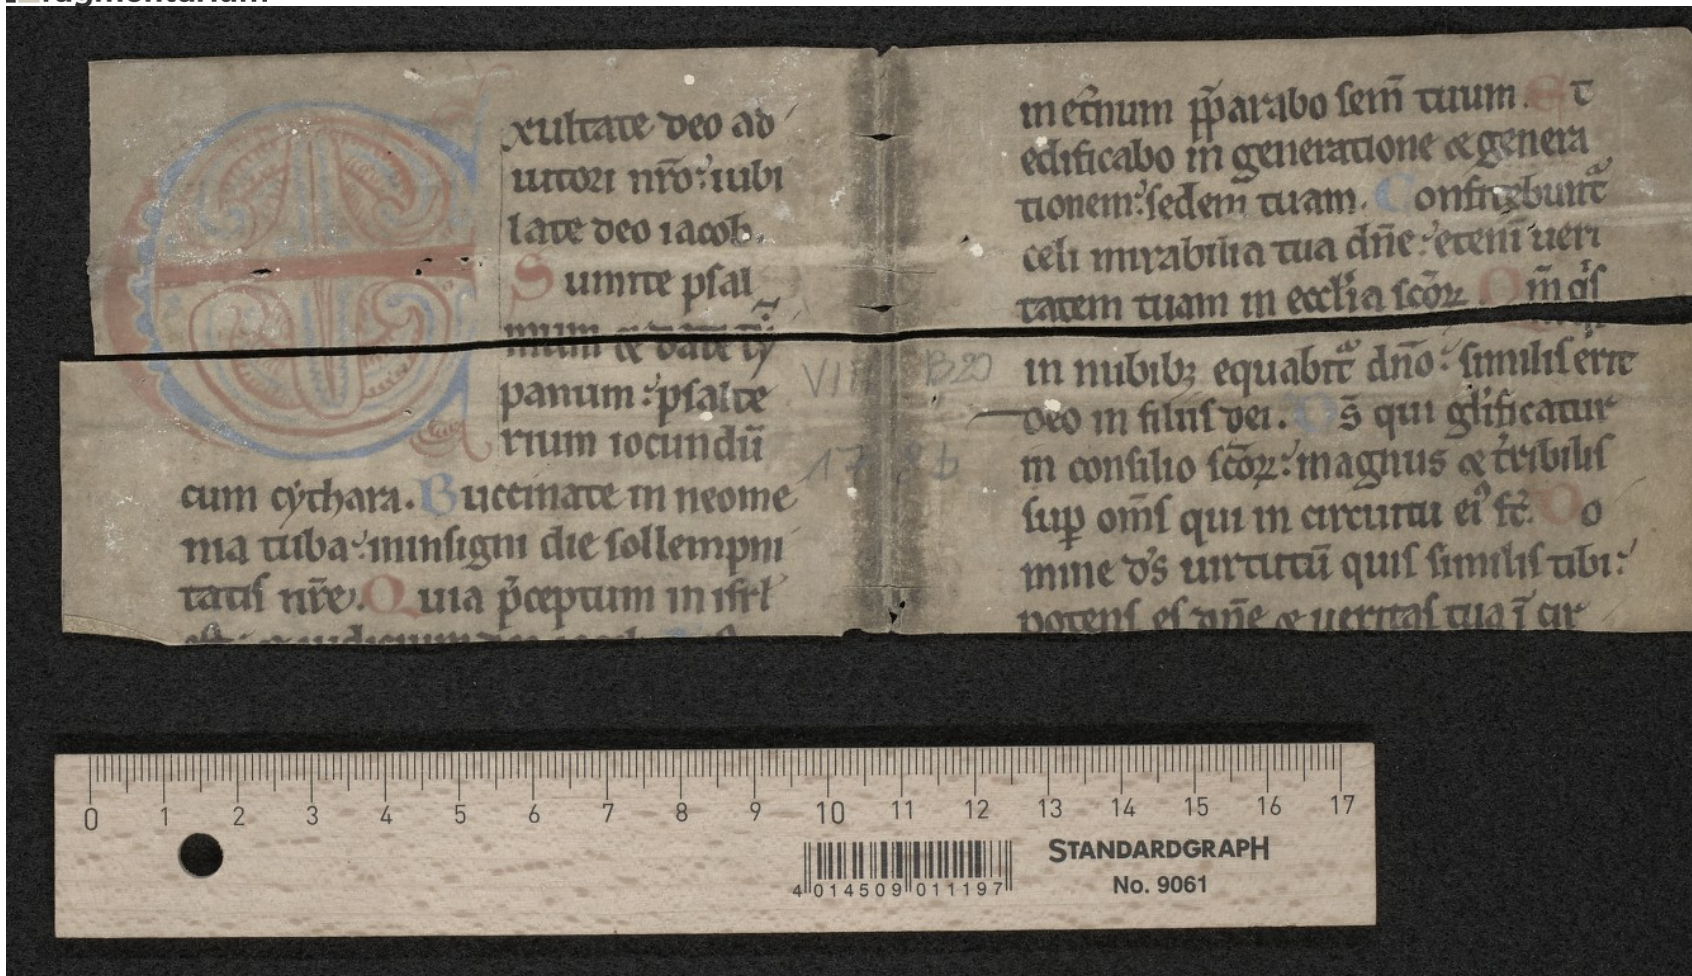 Exultate deo ad
iutori nr̄o: iubi
late deo iacob.
Sumite psal
mum & date tȳ
panum: psalte
rium iocundū
cum cẏthara. Buccinate in neome
nia tuba: ininsigni die sollempni
tatis nr̄e. Quia p̄ceptum in isrl̓
est: & iudicium deo iacob.
in et̓num p̄parabo sem̄ tuum. Et
edificabo in generatione & genera
tionem: sedem tuam. Confitebunt᷑
celi mirabilia tua dn̄e: eteni̅ ueri
tatem tuam in eccl̓ia sc̄oꝝ. Qm̄ qͥs
in nubibꝫ equabit᷑ dn̄o: similis erit
deo in filiis dei. Ds̄ qui gl̓ificatur
in consilio sc̄oꝝ: magnus & t̓ribilis
suꝑ om̄s qui in circuitu eiꝰ st̄. Do
mine ds̄ uirtutū quis similis tibi:
potens es dn̄e & ueritas tua ī cir
VII B20
17 8 b
0 1 2 3 4 5 6 7 8 9 10 11 12 13 14 15 16 17
STANDARDGRAPH
No. 9061
4 014509 011197